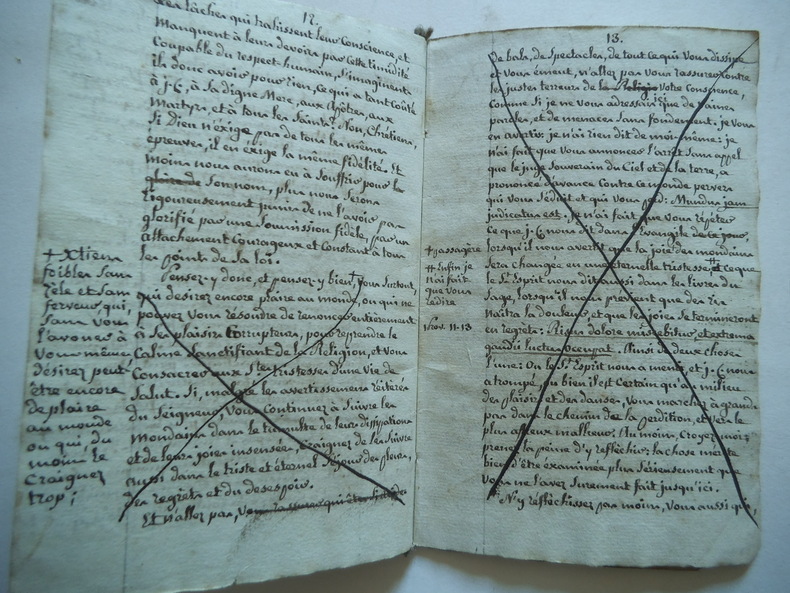 12.
des lâches qui trahissent leur Conscience, et
Manquent à leurs devoirs par cette timidité
Coupable du respect humain, s'imaginent
ils donc avoir pour rien, ce qui a tant Coûté
à J.C., à sa digne Mere, aux Apôtres, aux
Martyrs, et à tous les Saints? Non, Chrétiens,
si Dieu n'éxige pas de tous les mêmes
épreuves, il en éxige la même fidélité. Et
moins nous aurons eu à Souffrir pour la
gloire de Son nom, plus nous Serons
rigoureusement punis de ne l'avoir pas
glorifié par une Soumission fidèle, par un
attachement Courageux et Constant à tous
les points de sa loi.
Pensez-y donc, et pensez-y bien, + vous surtout,
qui désirez encore plaire au monde, ou qui ne
pouvez vous résoudre de renoncer entièrement
à ses plaisirs Corrupteurs, pour reprendre le
Calme Sanctifiant de la Religion, et vous
Consacrer aux Stes tristesses d'une vie de
Salut. Si, malgré les avertissemens réitérés
du Seigneur, Vous Continuez à Suivre les
Mondains dans le tumulte de leurs dissipations
et de leurs joies insensées, craignez de les Suivre
aussi dans le triste et éternel Séjour des pleurs,
des regrets et du desespoir.
Et n'allez pas, vous rassurer
+ Xtiens
foibles Sans
zèle et Sans
ferveur, qui,
sans vous
l'avouer à
Vous même
désirez peut
être encore
de plaire
au monde
ou qui du
moins le
Craignez
trop;
13.
De bals, de Spectacles, de tout ce qui Vous dissipe
et vous émeut, n'allez pas vous rassurer contre
les justes terreurs de la Religio votre Conscience,
Comme si je ne vous adressois ici que de vaines
paroles, et de menaces Sans fondement. je vous
en avertis: je n'ai rien dit de moi-même: je
n'ai fait que vous annoncer l'arrêt Sans appel
que le juge Souverain du Ciel et de la terre, a
prononcé d'avance Contre ce monde pervers
qui vous Séduit et qui vous perd: Mundus jam
judicatus est. je n'ai fait que vous répéter
ce que J.C. nous dit dans l'Evangile de ce jour,
lorsqu'il nous avertit que la joie des mondains +
Sera Changée en une éternelle tristesse, # et ce que
le St. Esprit nous dit aussi dans les livres du
Sage, lorsqu'il nous prévient que des ris
naîtra la douleur, et que les joies se termineront
en regrets: Risus dolore miscebitur, et extrema
gaudii luctus occupat. Ainsi de deux choses
l'une: Ou le St. Esprit nous a menti, et J.C. nous
a trompés, ou bien il est Certain qu'au milieu
des plaisirs et des danses, vous marchez à grands
pas dans le chemin de la perdition, et vers le
plus affreux malheur. Au moins, Croyez-moi,
prenez la peine d'y réfléchir: la chose mérite
bien d'être examinée plus Sérieusement que
Vous ne l'avez Surement fait jusqu'ici.
N'y réfléchissez pas moins, vous aussi qui,
+ passagère
# Enfin je
n'ai fait
que vous
redire
Prov. 11.13